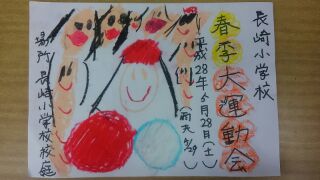 長崎小学校
春季大運動会
平成28年5月28日(土)
(雨天5/29)
場所 長崎小学校校庭